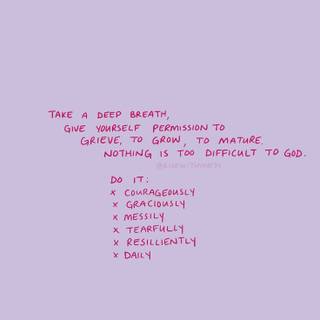 TAKE A DEEP BREATH,
GIVE YOURSELF PERMISSION TO
GRIEVE, TO GROW, TO MATURE.
NOTHING IS TOO DIFFICULT TO GOD.
DO IT:
x COURAGEOUSLY
x GRACIOUSLY
x MESSILY
x TEARFULLY
x RESILLIENTLY
x DAILY